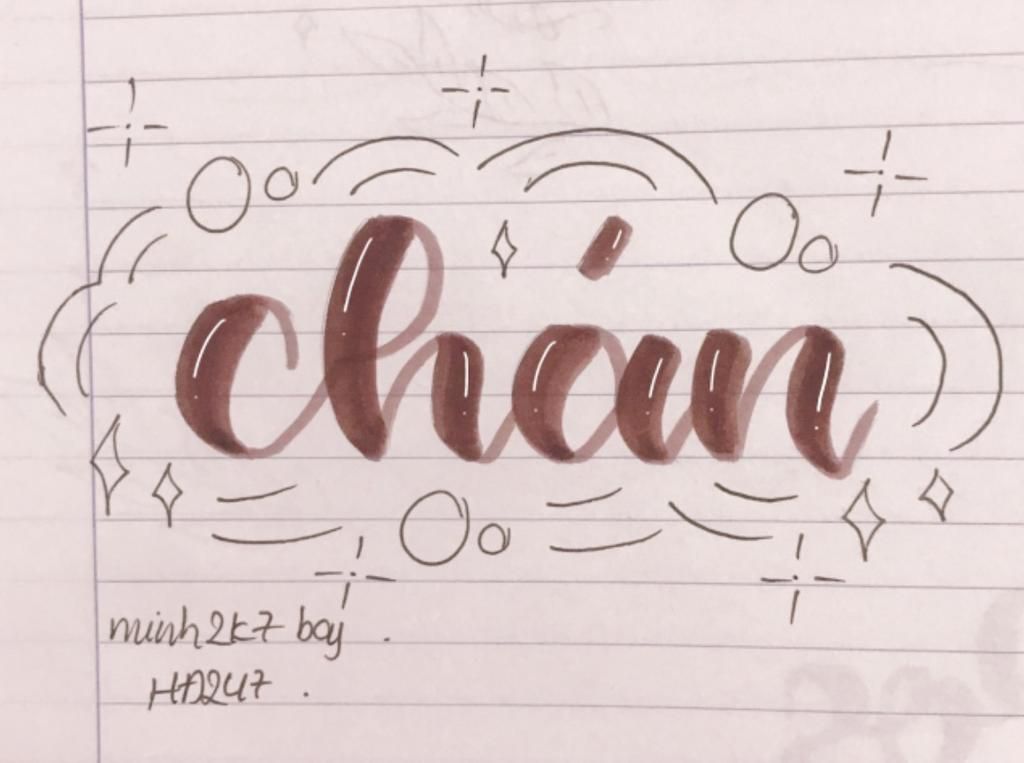 chán
minh2k7 boy .
HD247 .